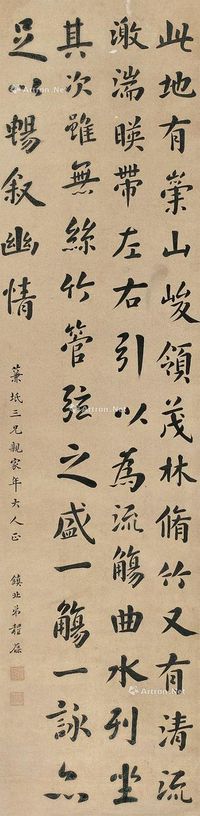 此地有崇山峻領茂林脩竹又有清流
激湍暎帶左右引以為流觴曲水列坐
其次雖無絲竹管弦之盛一觴一詠亦
足以暢敘幽情
三兄親家年大人正
鎮北弟程葆
Artron.Net